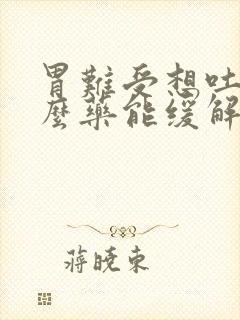 胃難受想吐
麼藥能緩解
蔣曉東